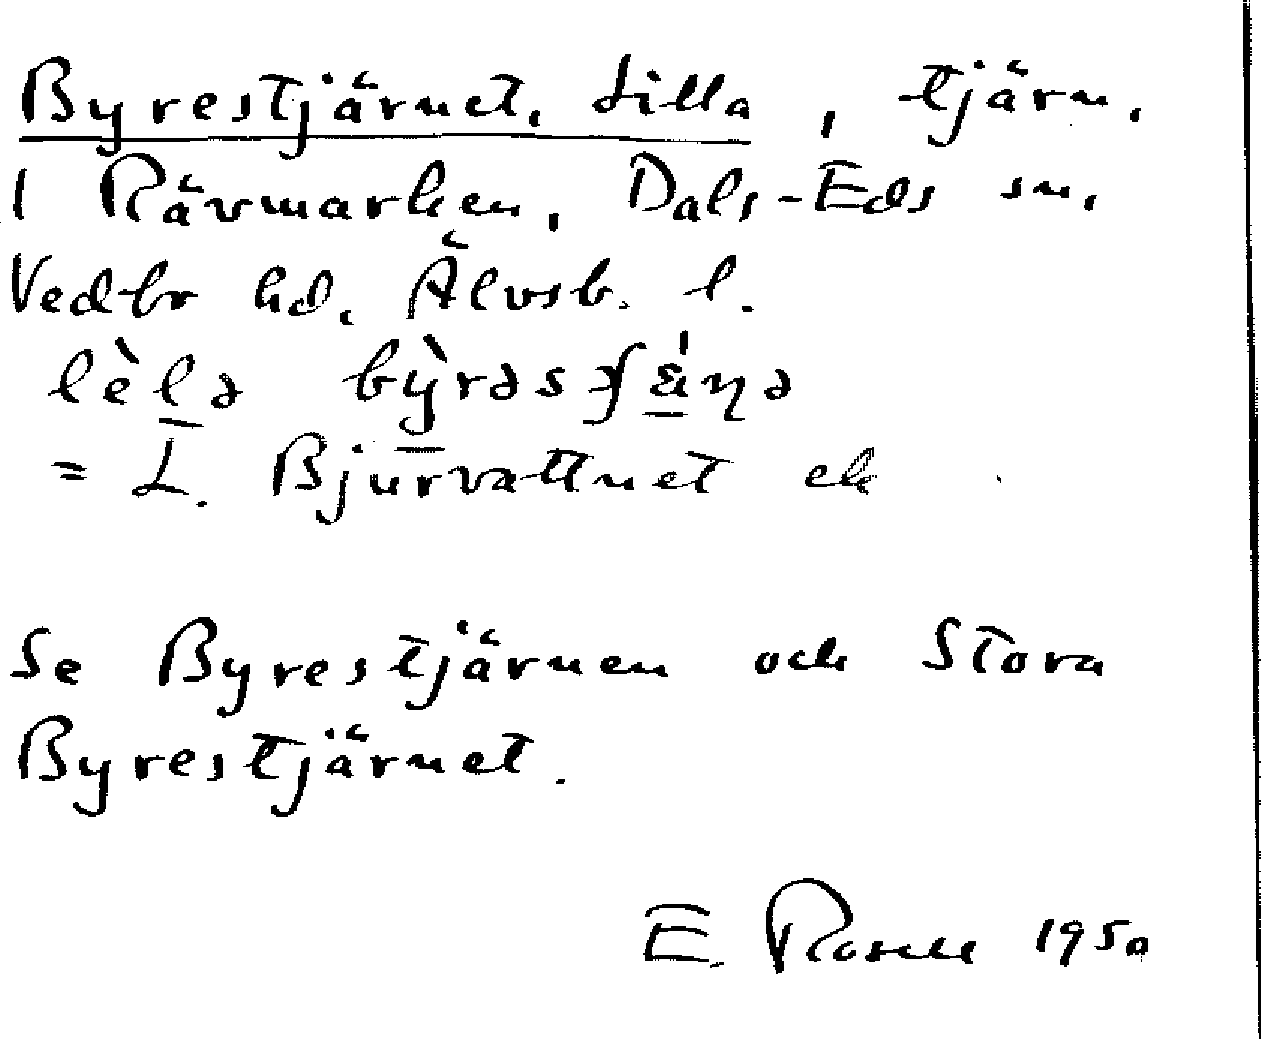 Byrestjärnet, Lilla, tjärn.
I Rävmarken, Dals-Eds sn,
Vedbo hd, Älvsb. l.
lèlə bỳrəs
= L. Bjurvattnet ek
Se Byrestjärnen och Stora
Byrestjärnet.
E. Rosell 1950